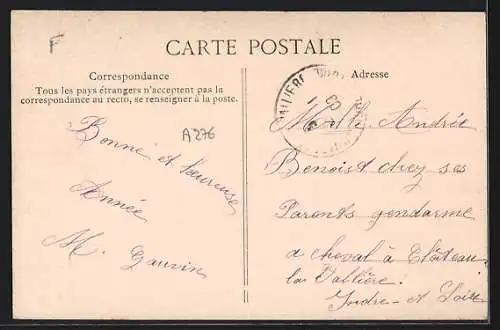 F
CARTE POSTALE
Correspondance
Tous les pays étrangers n'acceptent pas la
correspondance au recto, se renseigner à la poste.
A276
Bonne et Heureuse
Année
M. Gauvin
Adresse
Melle Andrée
Benoist chez ses
Parents gendarme
a cheval à Château
la Vallière.
Indre-et Loire